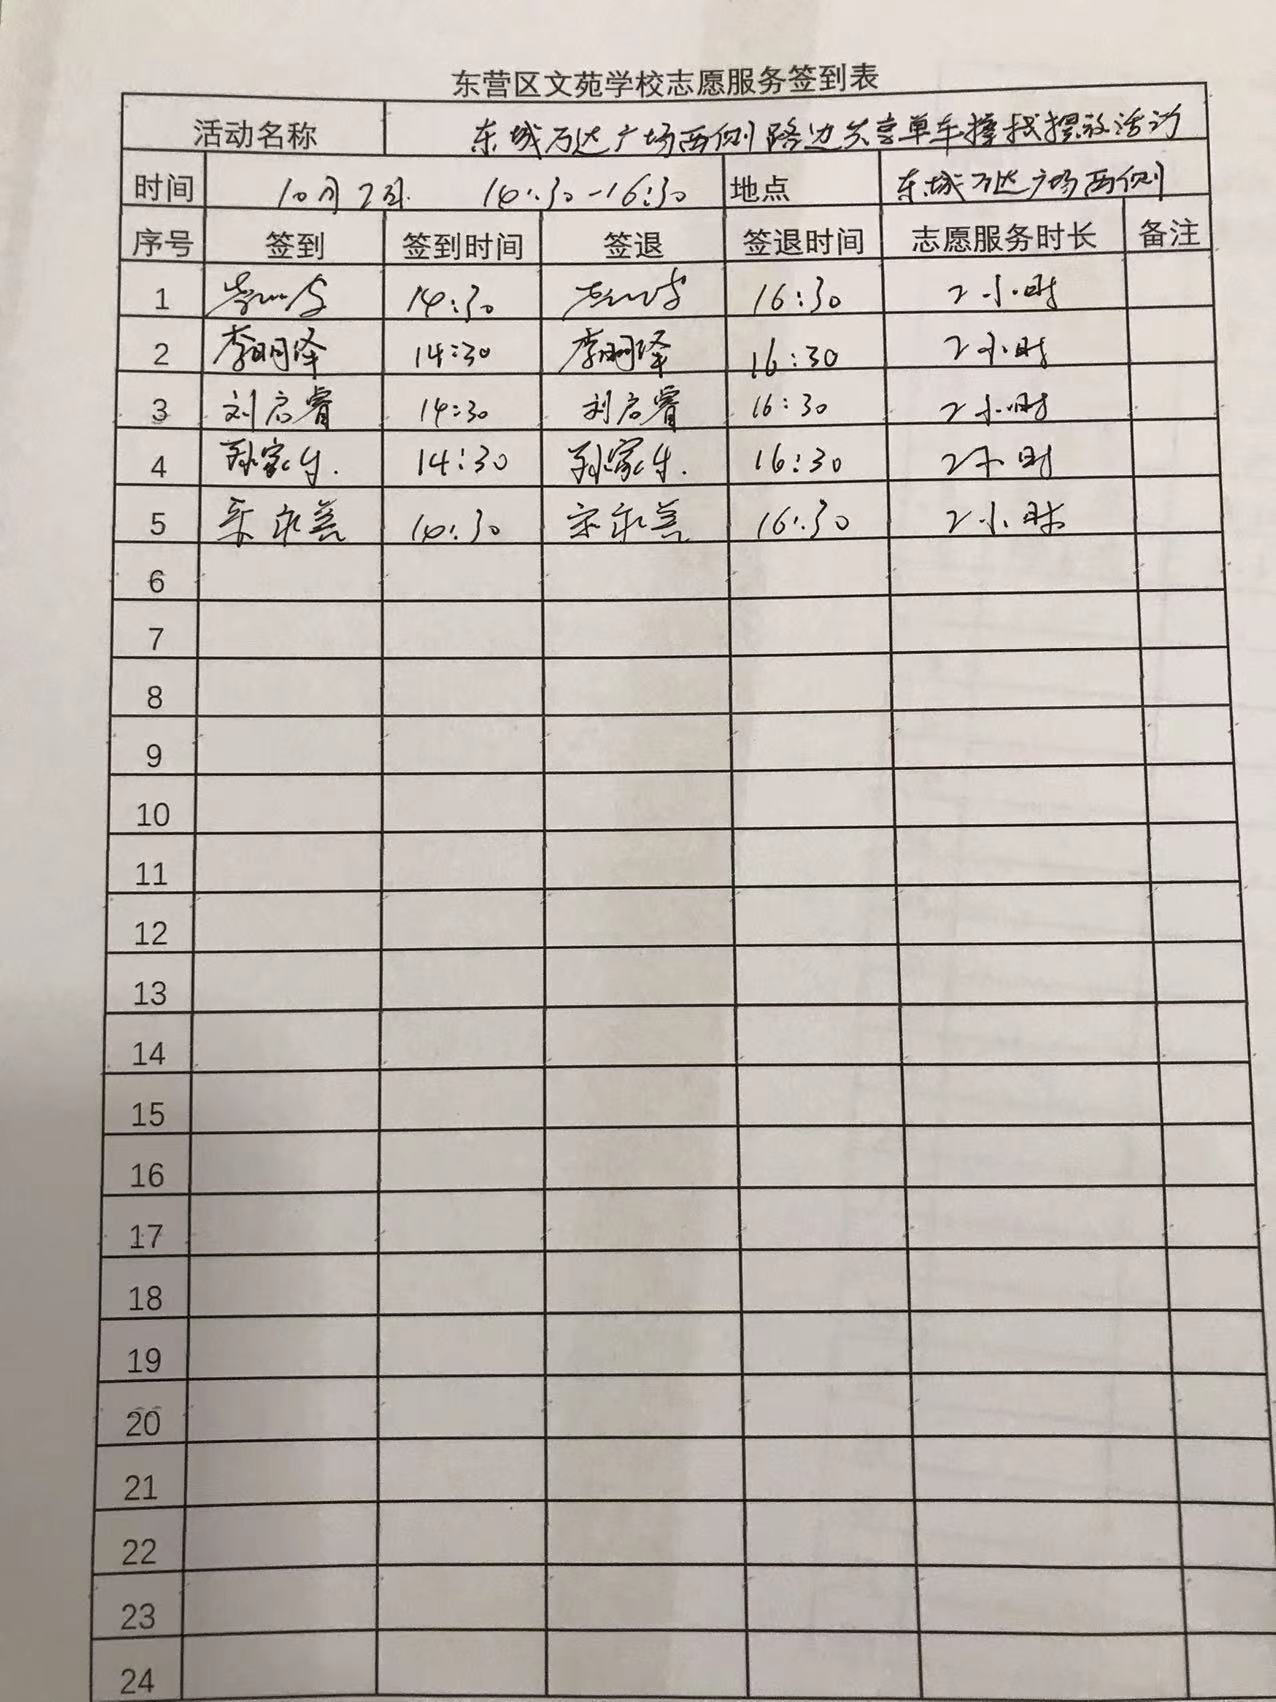 东营区文苑学校志愿服务签到表
活动名称 东城万达广场西侧路边共享单车摆放活动
时间 10月2日 14:30-16:30 地点 东城万达广场西侧
序号 签到 签到时间 签退 签退时间 志愿服务时长 备注
1 14:30 16:30 2小时
2 李明泽 14:30 李明泽 16:30 2小时
3 刘启睿 14:30 刘启睿 16:30 2小时
4 孙家 14:30 孙家 16:30 2小时
5 14:30 16:30 2小时
6
7
8
9
10
11
12
13
14
15
16
17
18
19
20
21
22
23
24